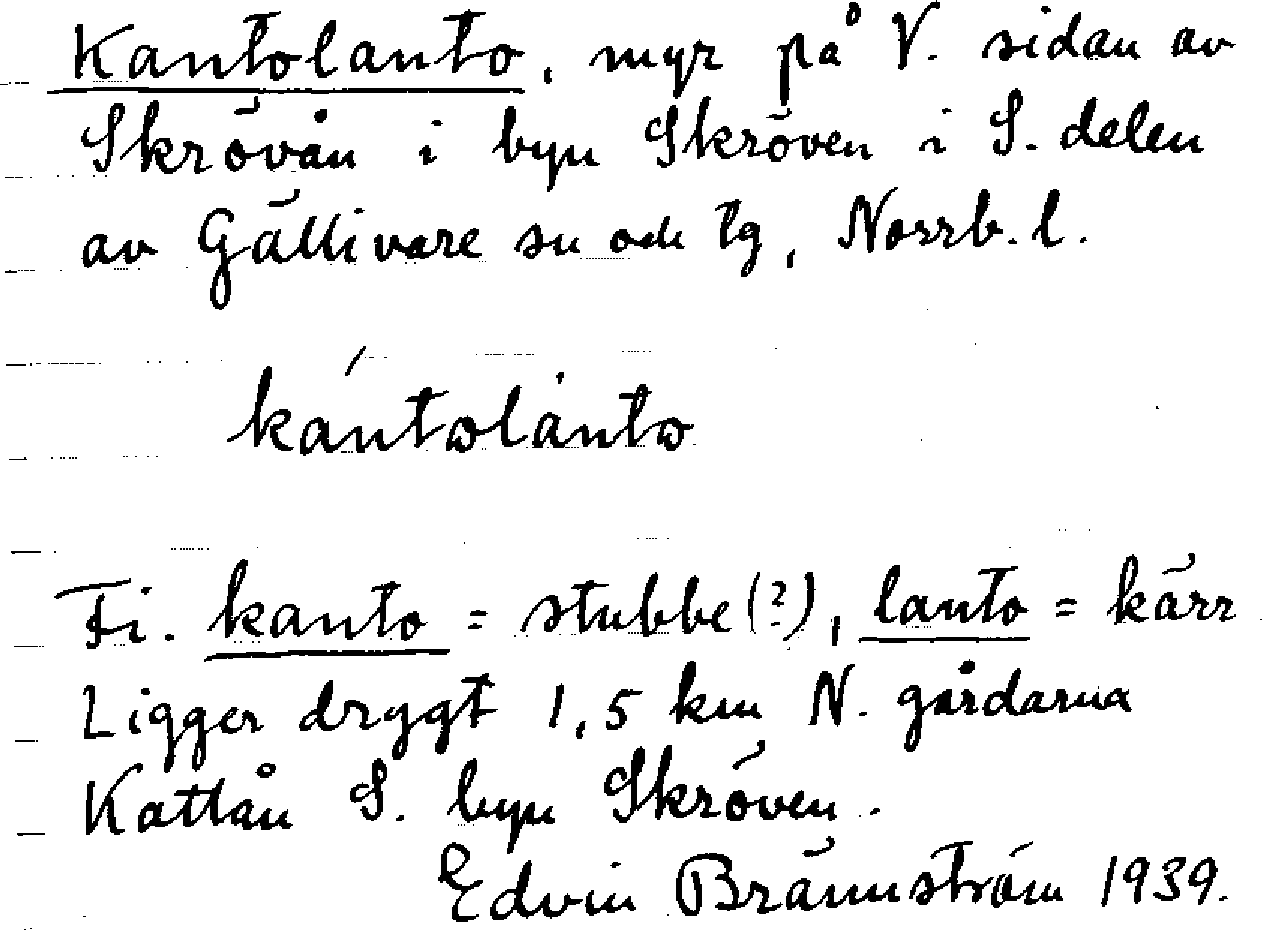 Kantolanto, myr på V. sidan av
Skrövån i byn Skröven i S. delen
av Gällivare sn och tg, Norrb. l.
kántωlȧntω
Fi. kanto = stubbe (?), lanto = kärr
Ligger drygt 1,5 km N. gårdarna
Kattån S. byn Skröven.
Edvin Brännström 1939.